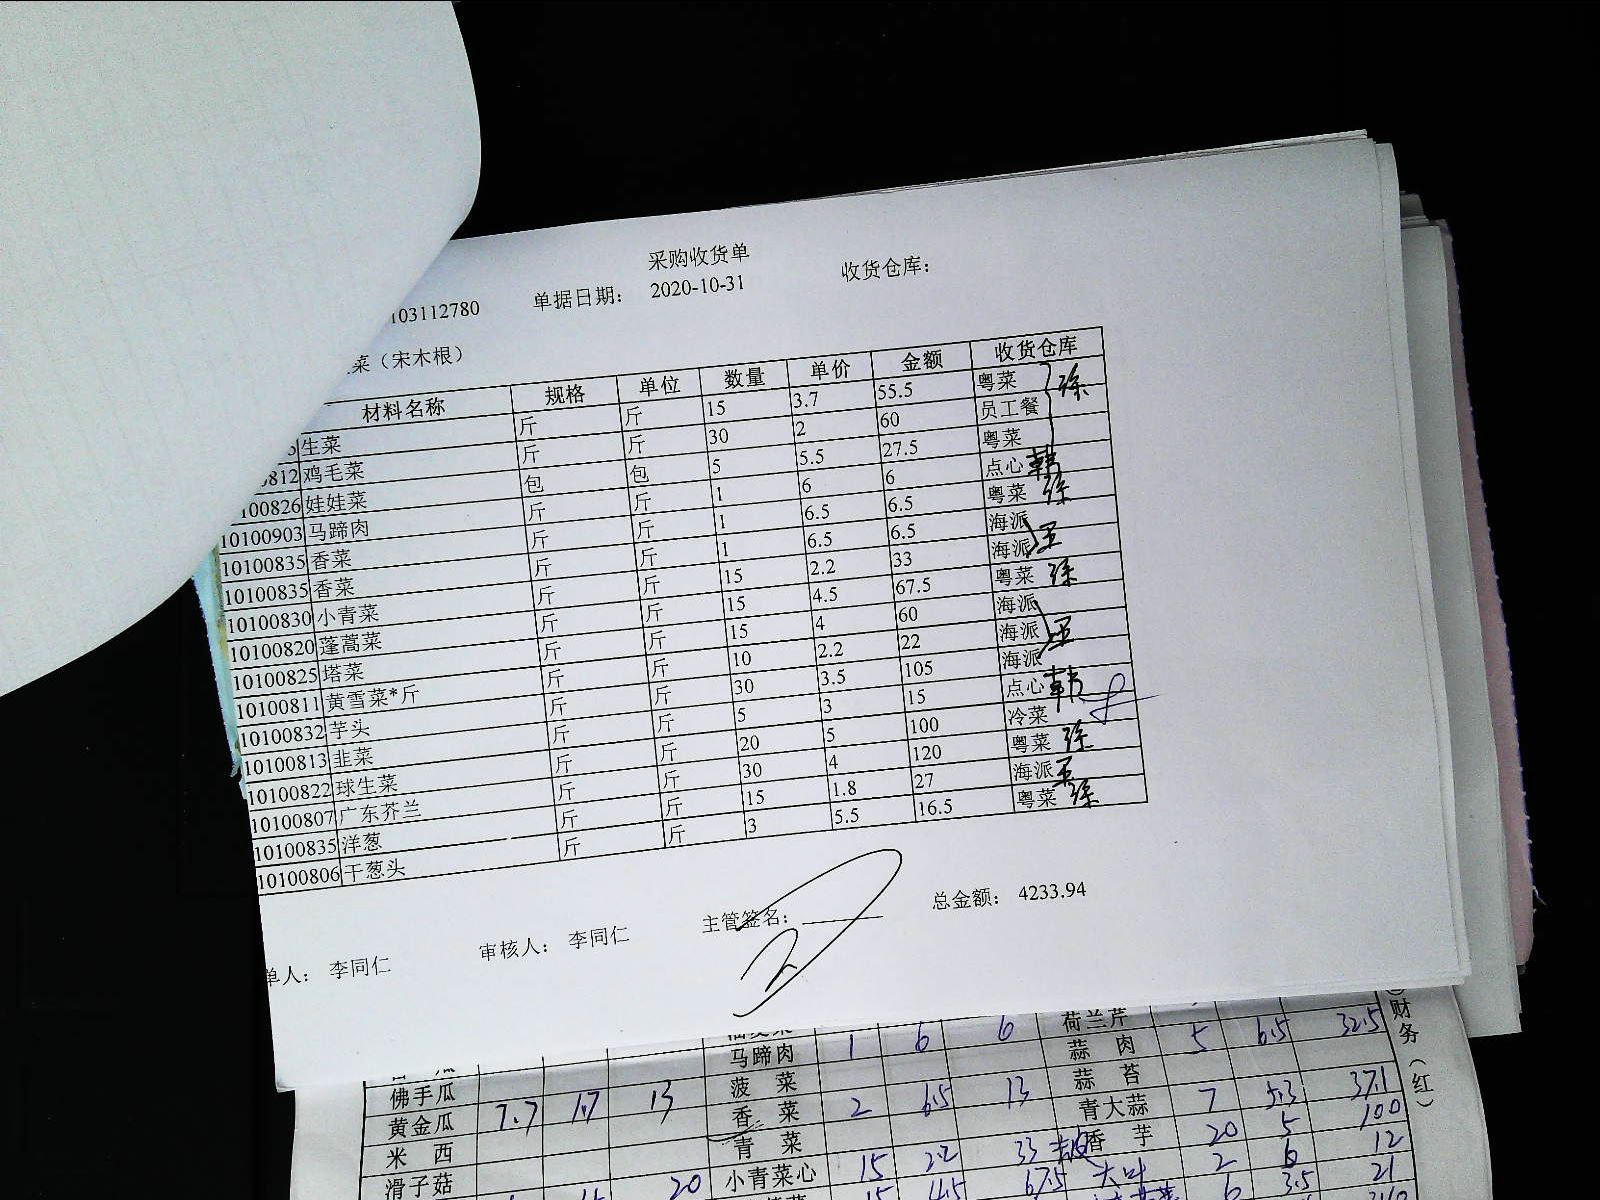 采购收货单
103112780 单据日期： 2020-10-31 收货仓库：
菜（宋木根）
材料名称 规格 单位 数量 单价 金额 收货仓库
生菜 斤 斤 15 3.7 55.5 粤菜 徐
812 鸡毛菜 斤 斤 30 2 60 员工餐
100826 娃娃菜 包 包 5 5.5 27.5 粤菜
10100903 马蹄肉 斤 斤 1 6 6 点心 韩
10100835 香菜 斤 斤 1 6.5 6.5 粤菜 徐
10100835 香菜 斤 斤 1 6.5 6.5 海派
10100830 小青菜 斤 斤 15 2.2 33 海派 王
10100820 蓬蒿菜 斤 斤 15 4.5 67.5 粤菜 徐
10100825 塔菜 斤 斤 15 4 60 海派
10100811 黄雪菜*斤 斤 斤 10 2.2 22 海派 王
10100832 芋头 斤 斤 30 3.5 105 海派
10100813 韭菜 斤 斤 5 3 15 点心 韩
10100822 球生菜 斤 斤 20 5 100 冷菜
10100807 广东芥兰 斤 斤 30 4 120 粤菜 徐
10100835 洋葱 斤 斤 15 1.8 27 海派 王
10100806 干葱头 斤 斤 3 5.5 16.5 粤菜 徐
单人： 李同仁 审核人： 李同仁 主管签名： 总金额： 4233.94
6 6 荷兰芹
马蹄肉 1 蒜 肉 5 6.5 32.5
佛手瓜 菠 菜 蒜 苔
黄金瓜 7.7 1.7 13 香 菜 2 6.5 13 青大蒜 7 5.3 37.1
米 西 青 菜 香 芋 20 5 100
滑子菇 20 小青菜心 15 2.2 33 大叶 2 6 12
15 4.5 67.5 6 3.5 21
财务（红）